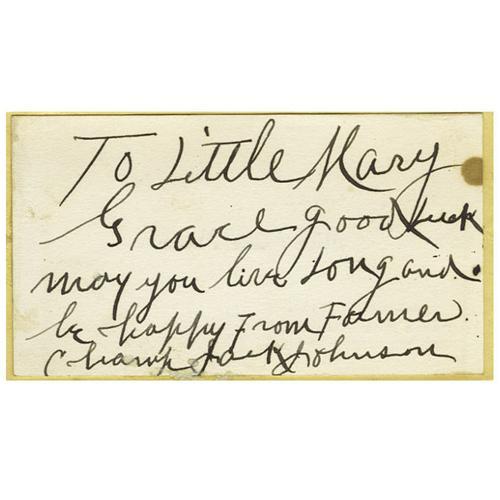 To Little Mary
Grace good Luck
may you live Long and.
be happy From Former.
Champ Jack Johnson